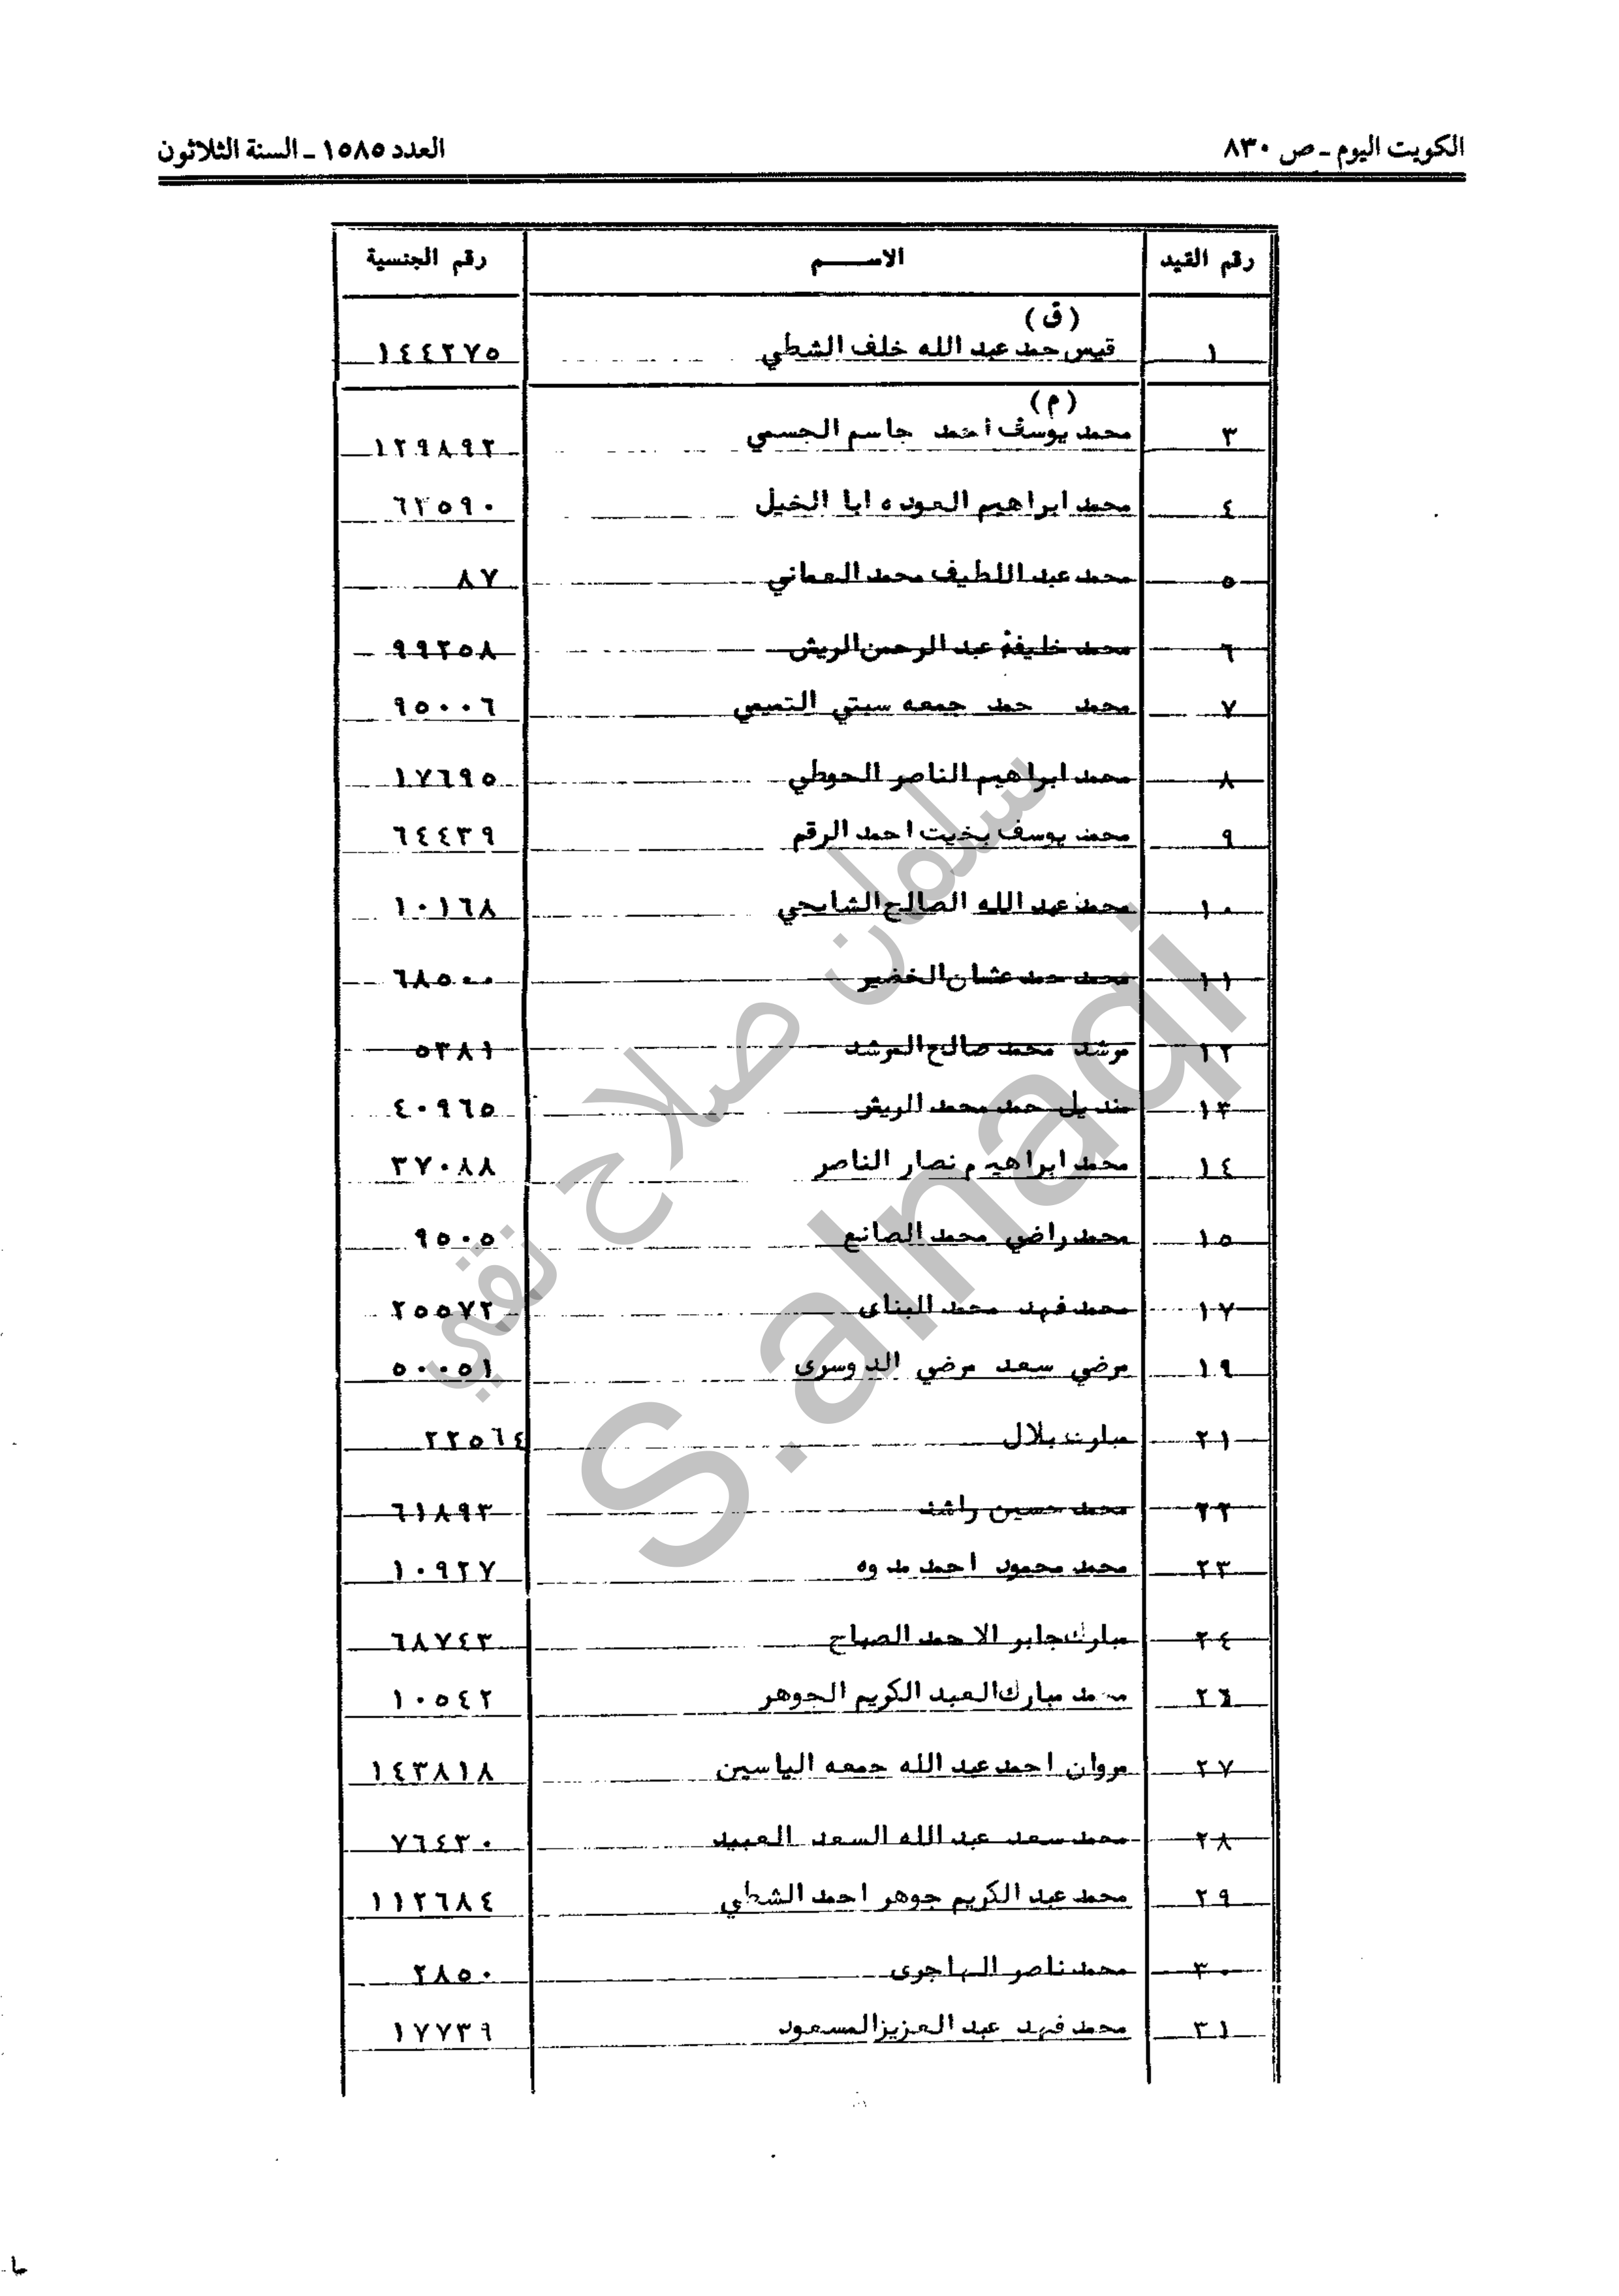 الكويت اليوم ـ ص ٨٣٠
العدد ١٥٨٥ ـ السنة الثلاثون
رقم القيد الاســـم رقم الجنسية
(ق)
١ قيس حمد عبد الله خلف الشطي ١٤٤٢٧٥
(م)
٣ محمد يوسف احمد جاسم الجسمي ١٢٩٨٩٢
٤ محمد ابراهيم العوده ابا الخيل ٦٢٥٩٠
٥ محمد عبد اللطيف محمد العماني ٨٧
٦ محمد خليفة عبد الرحمن الريش ٩٩٢٥٨
٧ محمد حمد جمعه سبتي التميمي ٩٥٠٠٦
٨ محمد ابراهيم الناصر الحوطي ١٧٦٩٥
٩ محمد يوسف بخيت احمد الرقم ٦٤٤٣٩
١٠ محمد عبد الله الصالح الشايجي ١٠١٦٨
١١ محمد حمد عثمان الخضير ٦٨٥٠٠
١٢ مرشد محمد صالح المرشد ٥٣٨١
١٣ منديل حمد محمد الريش ٤٠٩٦٥
١٤ محمد ابراهيم نصار الناصر ٣٧٠٨٨
١٥ محمد راضي محمد الصانع ٩٥٠٥
١٧ محمد فهد محمد البناى ٢٥٥٧٢
١٩ مرضي سعد مرضي الدوسرى ٥٠٠٥١
٢١ مبارك بلال ٢٢٥٦٤
٢٢ محمد حسين راشد ٦١٨٩٣
٢٣ محمد محمود احمد مدوه ١٠٩٢٧
٢٤ مبارك جابر الاحمد الصباح ٦٨٧٤٣
٢٦ محمد مبارك العبد الكريم الجوهر ١٠٥٤٢
٢٧ مروان احمد عبد الله جمعه الياسين ١٤٣٨١٨
٢٨ محمد سعد عبد الله السعد العبيد ٧٦٤٣٠
٢٩ محمد عبد الكريم جوهر احمد الشطي ١١٢٦٨٤
٣٠ محمد ناصر الهاجرى ٢٨٥٠
٣١ محمد فهد عبد العزيز المسعود ١٧٧٣٩
سلمان صلاح تقي
S.alnaqi